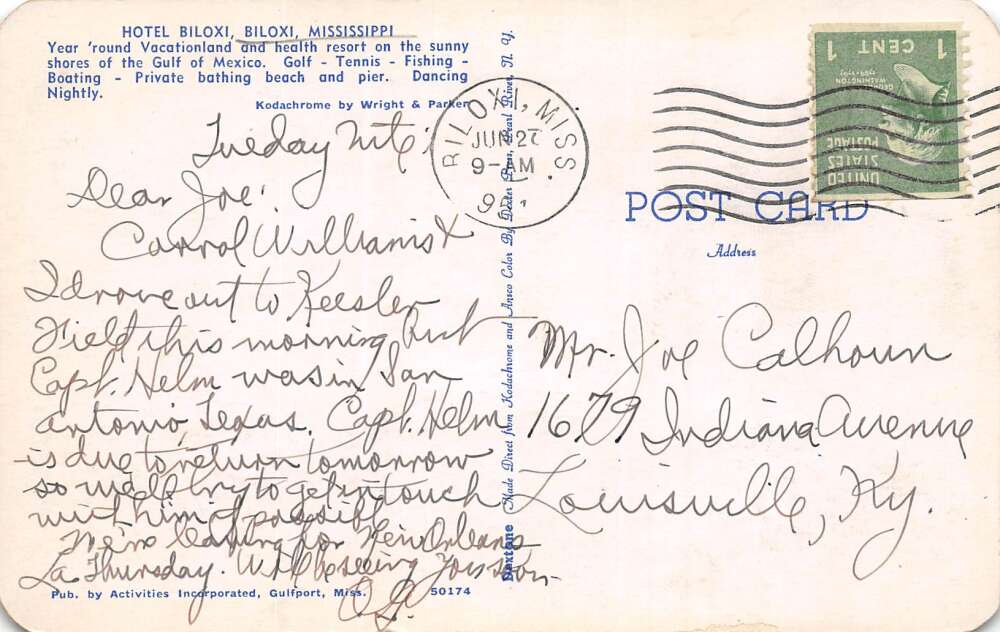 HOTEL BILOXI, BILOXI, MISSISSIPPI
Year 'round Vacationland and health resort on the sunny
shores of the Gulf of Mexico. Golf - Tennis - Fishing -
Boating - Private bathing beach and pier. Dancing
Nightly.
Kodachrome by Wright & Parker
Tueday Nite;
Dear Joe:
Carrol Williams &
I drove out to Keesler
Field this morning but
Capt. Helm was in San
Antonio, Texas. Capt. Helm
is due to return tomorrow
so we'll try to get in touch
with him if possible
We're leaving for New Orleans
La Thursday. Will be seeing you soon
Pub. by Activities Incorporated, Gulfport, Miss.
50174
Dextone Made Direct from Kodachrome and Ansco Color By Dexter Press, Pearl River, N. Y.
BILOXI, MISS.
JUN 2
9-AM
1 CENT 1
GEORGE
WASHINGTON
UNITED
STATES
POSTAGE
POST CARD
Address
Mr. Joe Calhoun
1679 Indiana Avenue
Louisville, Ky.